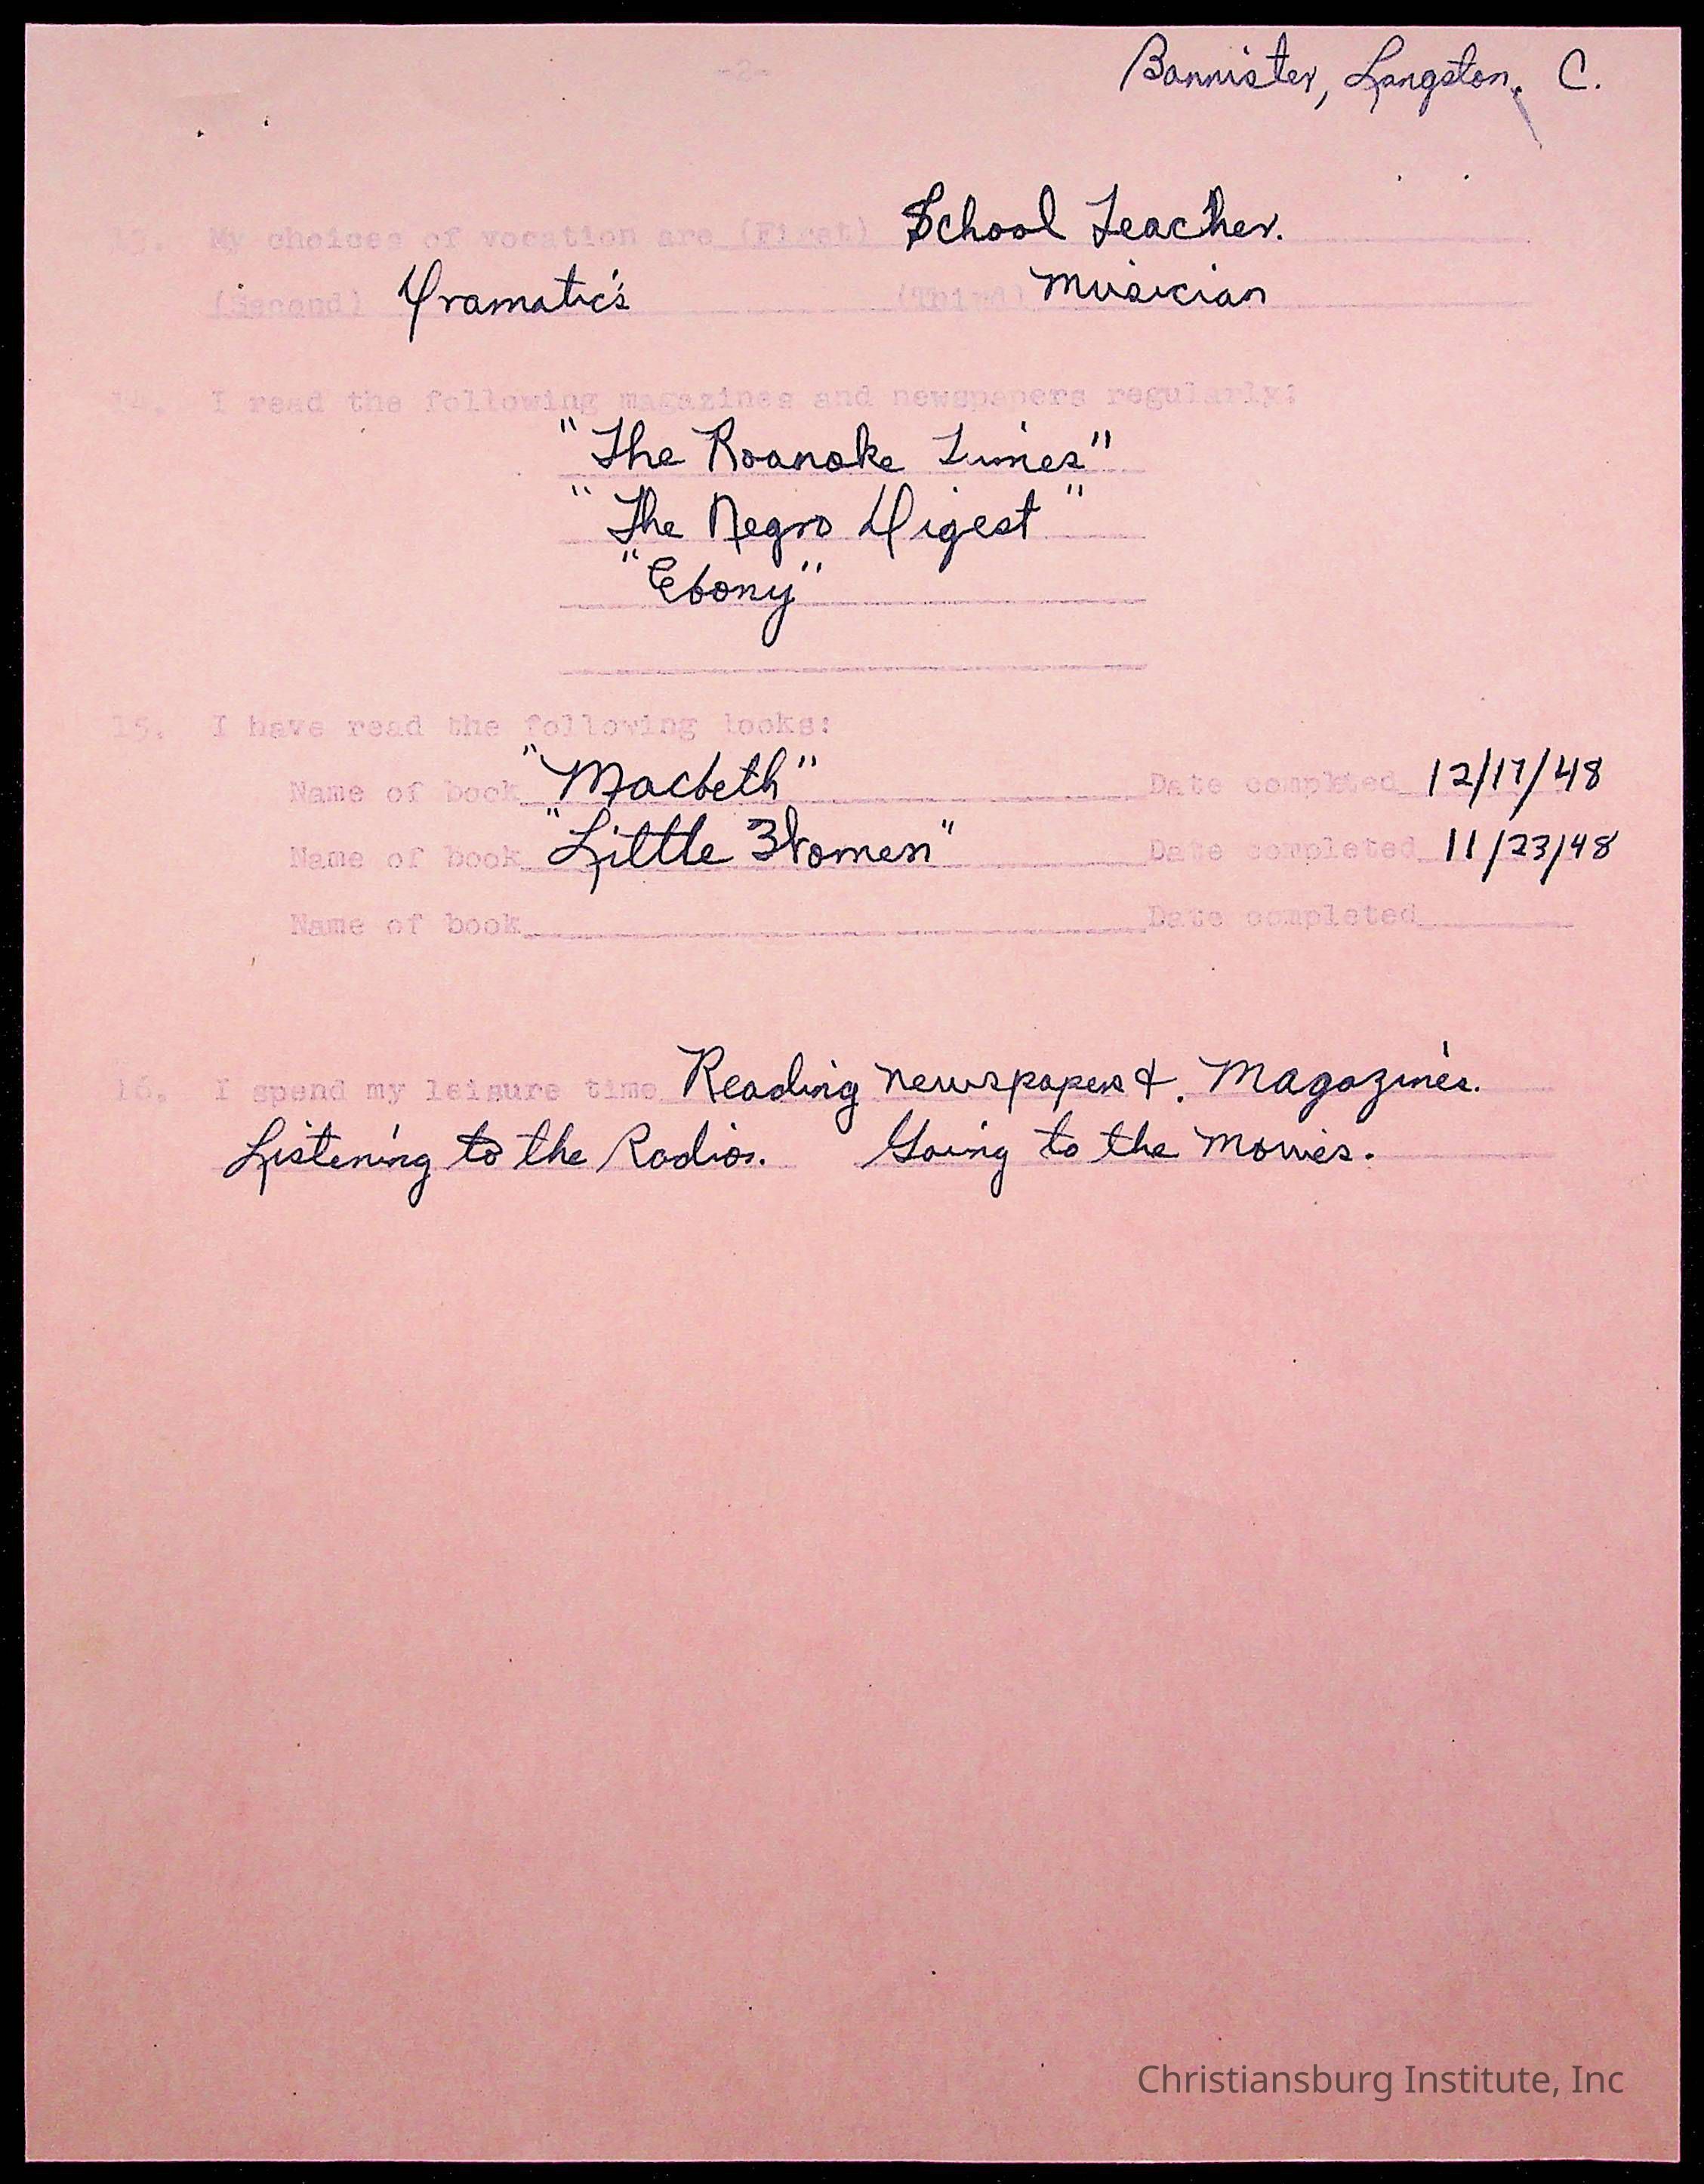 -2-
Bannister, Langston, C.
13. My choices of vocation are (First) School Teacher.
(Second) Dramatic's (Third) Musician
14. I read the following magazines and newspapers regularly:
"The Roanoke Times"
"The Negro Digest"
"Ebony"
15. I have read the following books:
Name of book "Macbeth" Date completed 12/17/48
Name of book "Little Women" Date completed 11/23/48
Name of book Date completed
16. I spend my leisure time Reading newspapers &. Magazines.
Listening to the Radios. Going to the Movies.
Christiansburg Institute, Inc